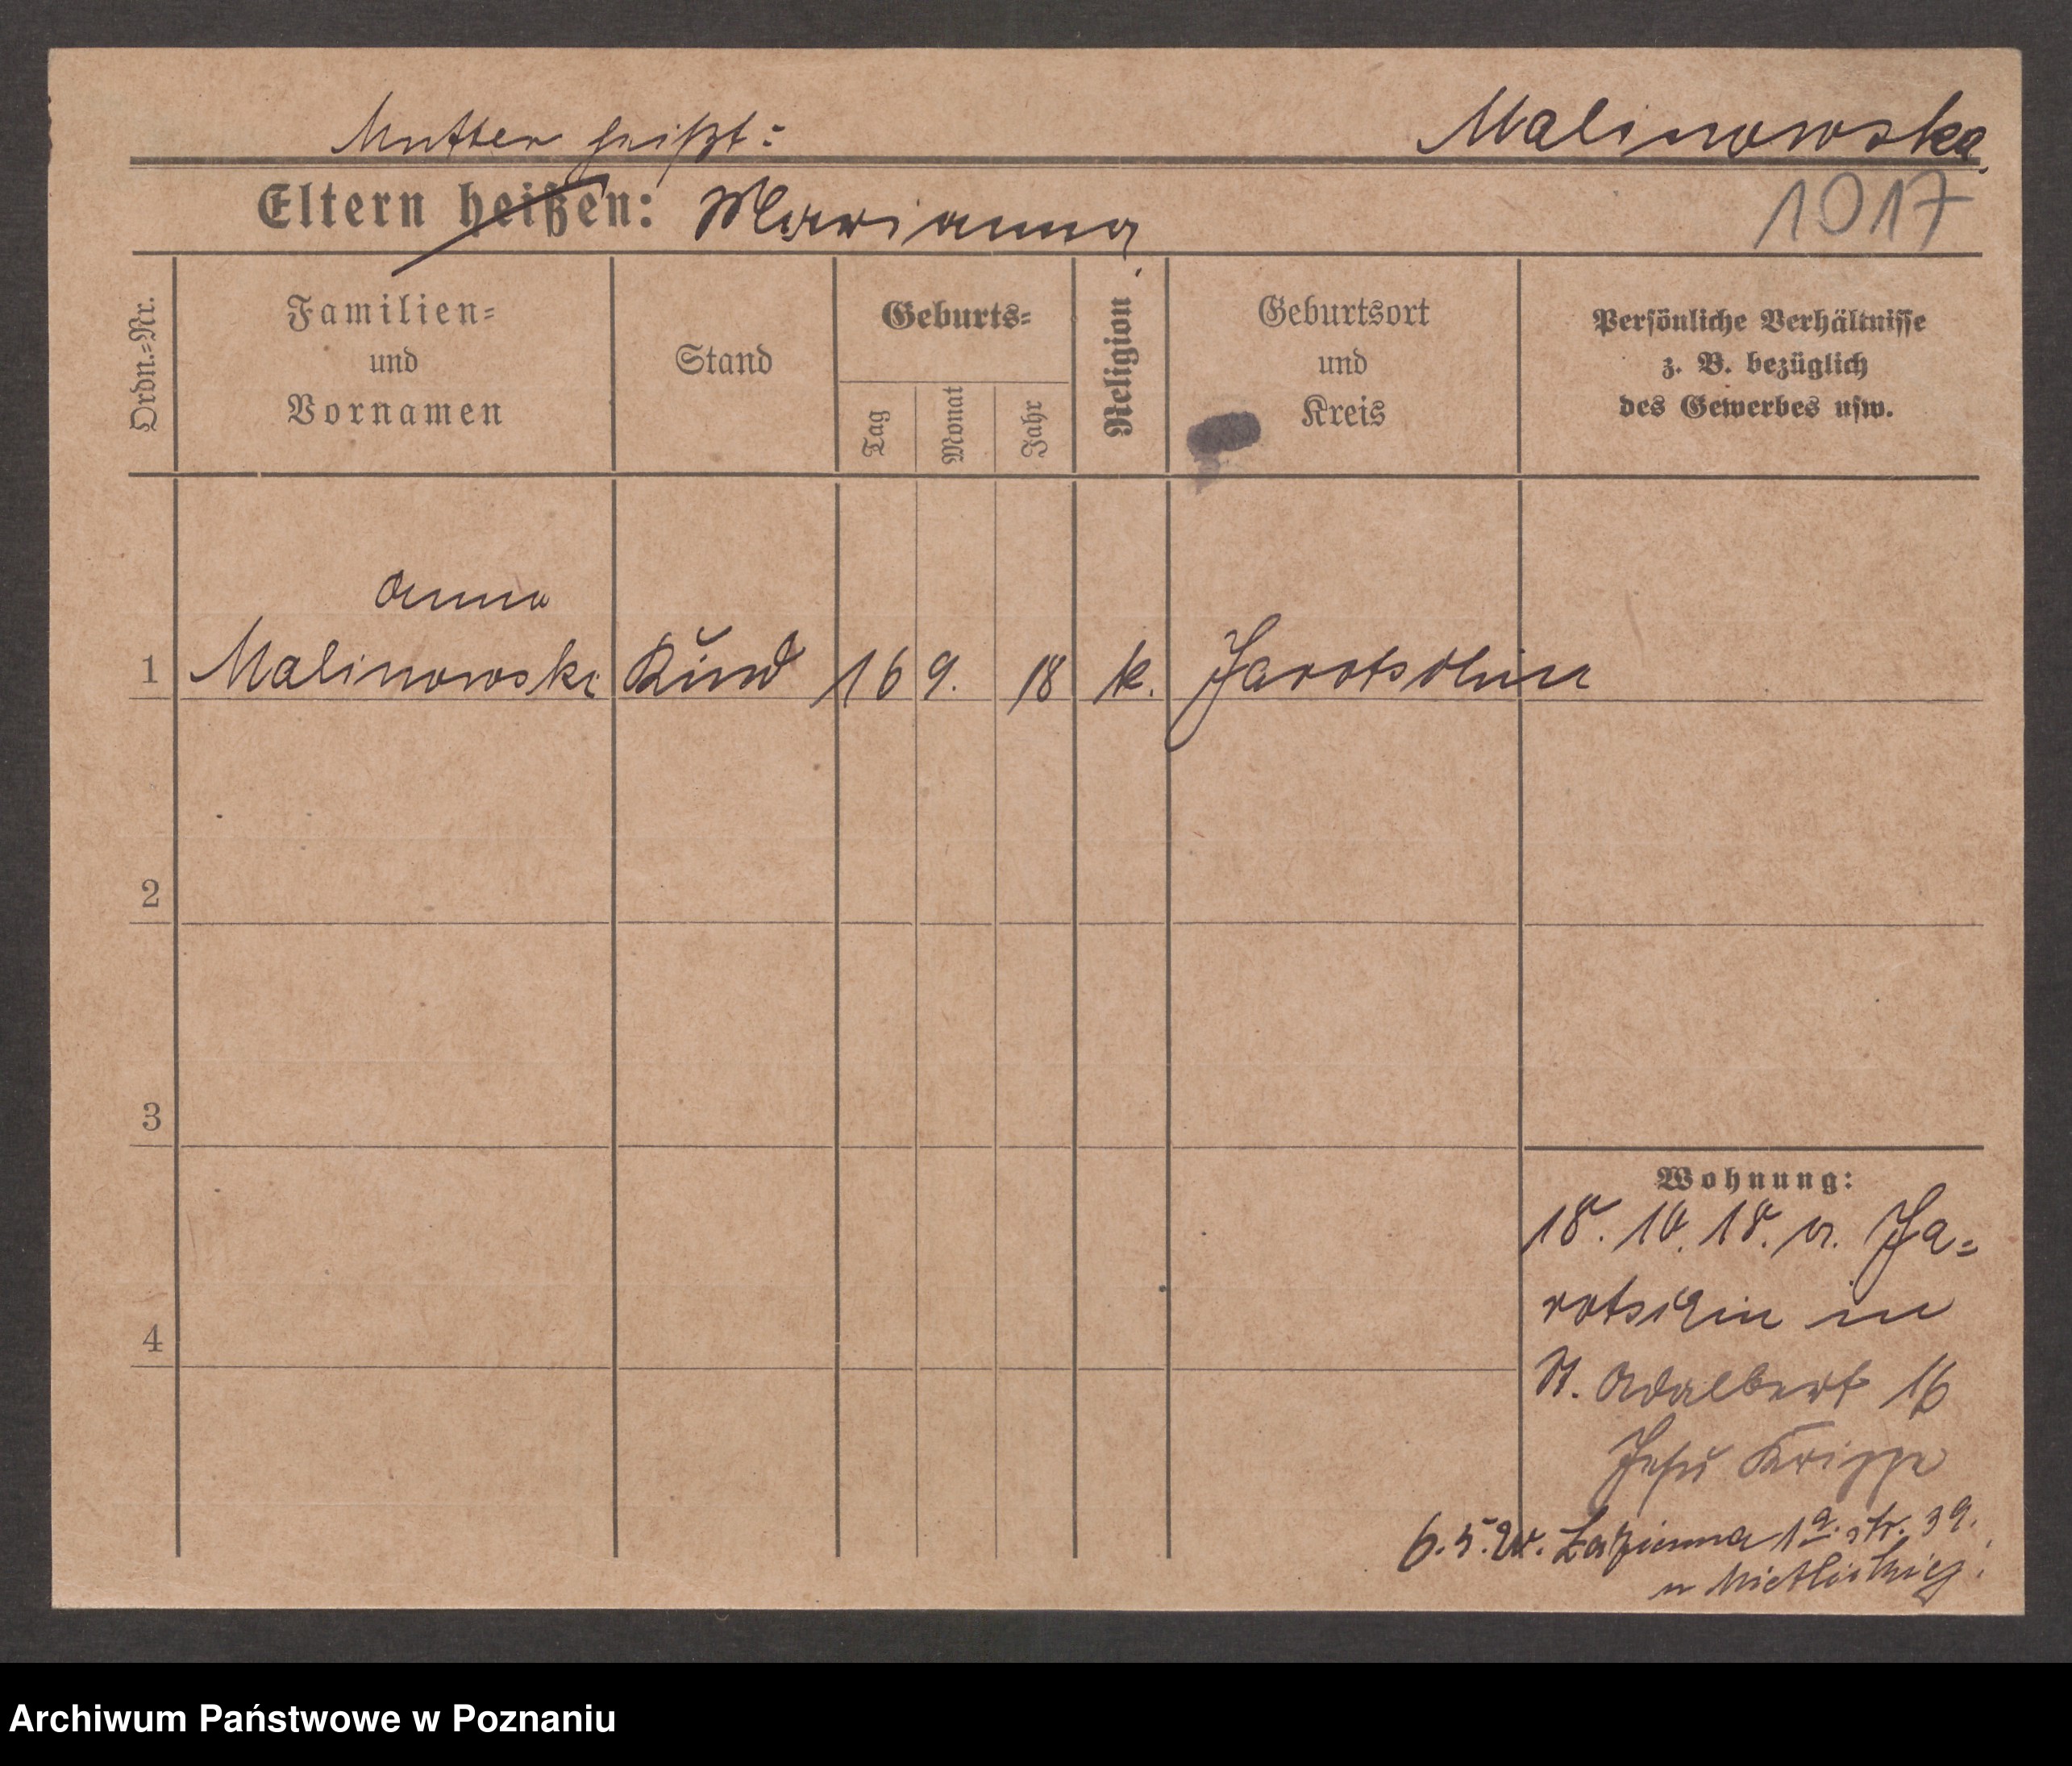 Mutter heißt: Malinowska
Eltern heißen: Marianna
1017
Ordn.=Nr. Familien= und Vornamen Stand Geburts= Tag Monat Jahr Religion Geburtsort und Kreis Persönliche Verhältnisse z. B. bezüglich des Gewerbes usw.
Anna
1 Malinowski Kind 16 9. 18 k. Jarotschin
2
3
4
Wohnung:
18. 10. 18. a. Ja=
rotschin in
St. Adalbert 16
Jesu Krippe
6. 5. 20. Łazienna 1a. str. 39.
Archiwum Państwowe w Poznaniu